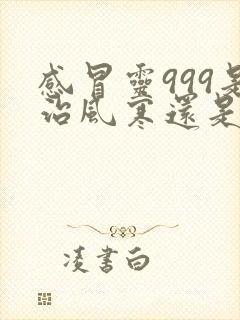 感冒靈999是
治風寒還是
凌書白